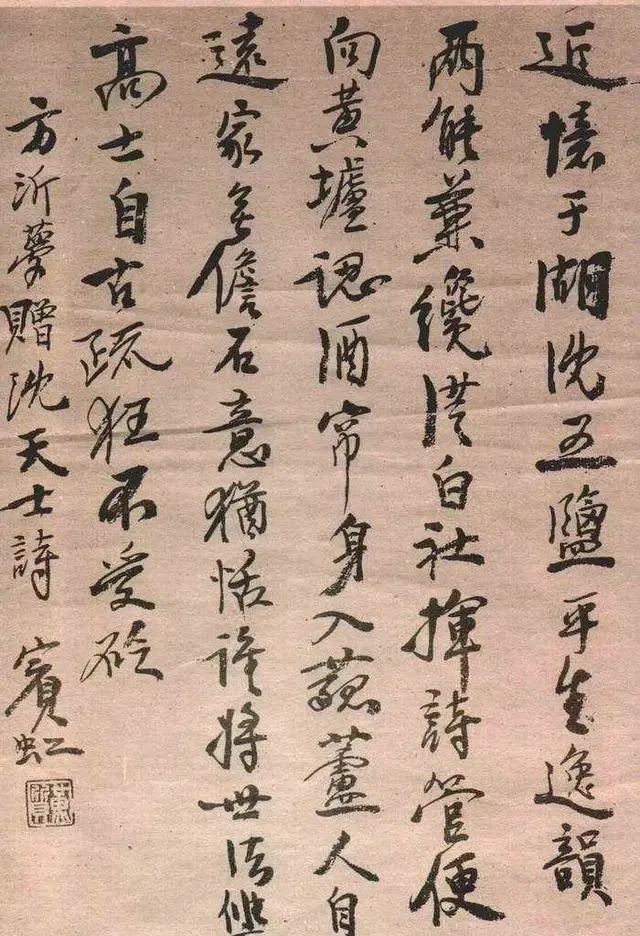 近懷于湖沈五鹽平生逸韻
兩能兼纔從白社揮詩管便
向黃壚認酒帘身入菰蘆人自
遠家無儋石意猶恬誰將世法
高士自古疏狂不受砭
方沂夢贈沈天士詩 賓虹